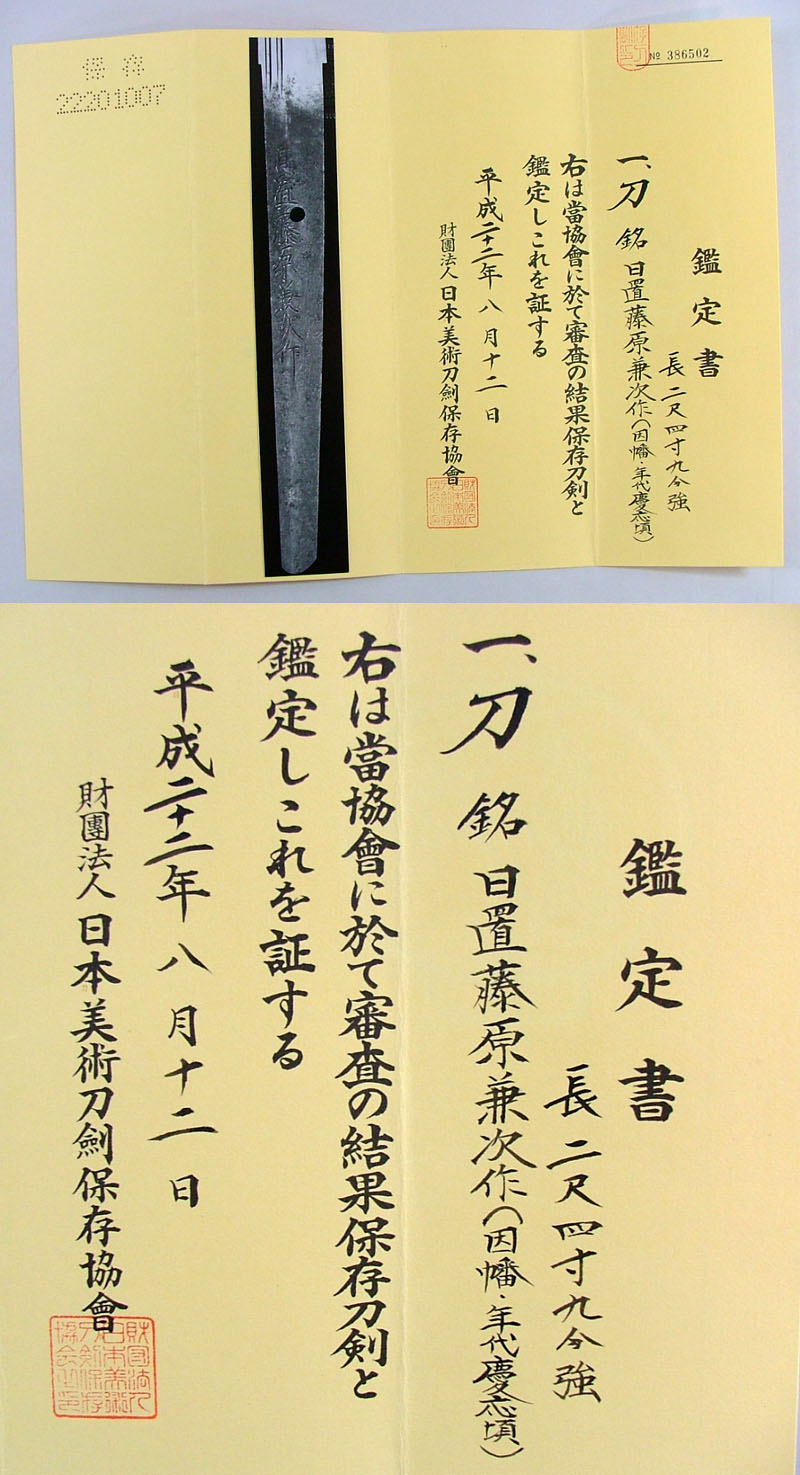 № 386502
鑑定書
長 二尺四寸九分強
一、刀 銘 日置藤原兼次作(因幡・年代慶応頃)
右は當協會に於て審査の結果保存刀剣と
鑑定しこれを証する
平成二十二年 八 月 十二 日
財團法人 日本美術刀劍保存協會
日置藤原兼次作
保存
22201007
鑑定書
長 二尺四寸九分強
一、刀 銘 日置藤原兼次作(因幡・年代慶応頃)
右は當協會に於て審査の結果保存刀剣と
鑑定しこれを証する
平成二十二年 八 月 十二 日
財團法人 日本美術刀劍保存協會